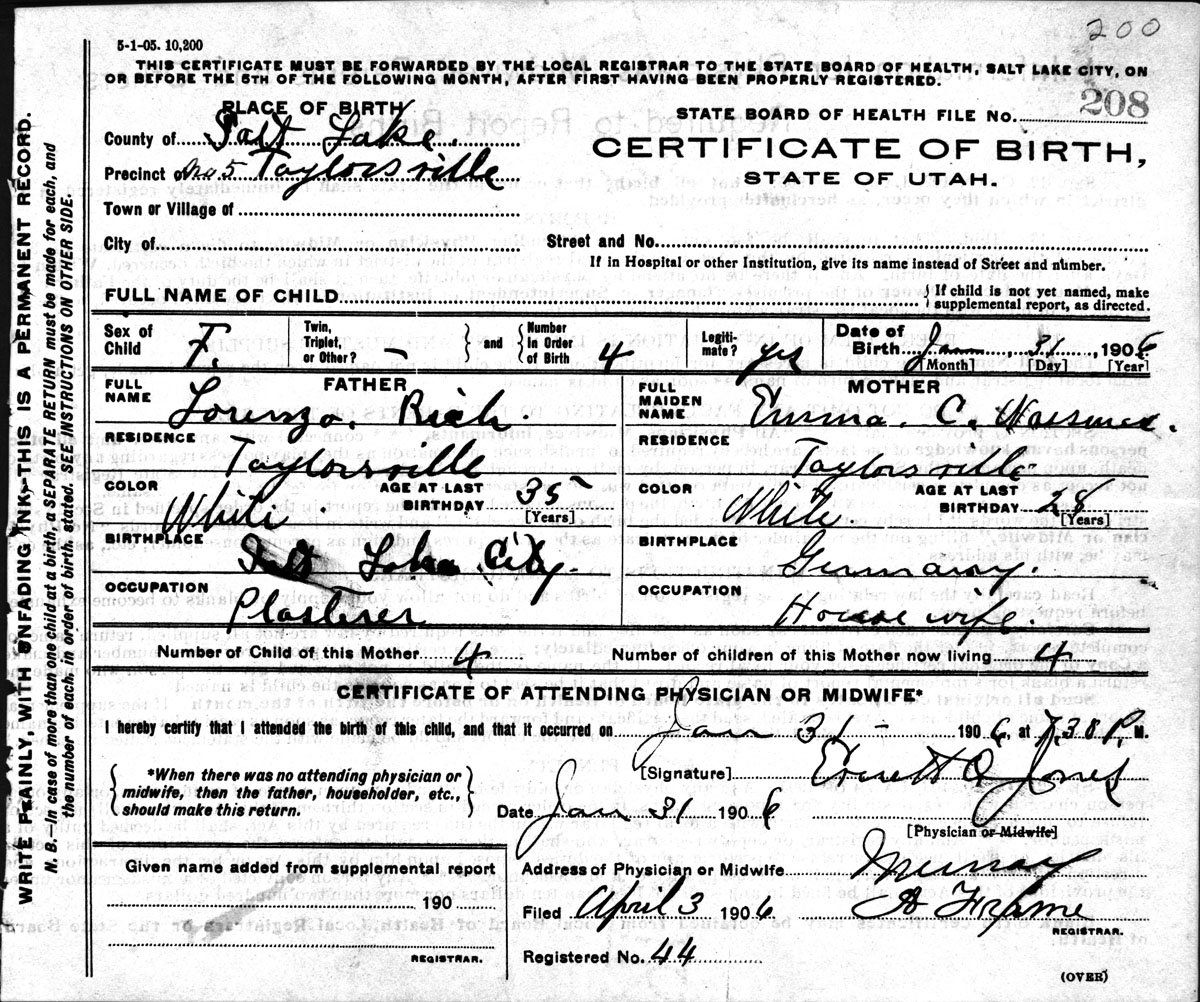 200
5-1-05. 10,200
THIS CERTIFICATE MUST BE FORWARDED BY THE LOCAL REGISTRAR TO THE STATE BOARD OF HEALTH, SALT LAKE CITY, ON
OR BEFORE THE 5TH OF THE FOLLOWING MONTH, AFTER FIRST HAVING BEEN PROPERLY REGISTERED.
WRITE PLAINLY, WITH UNFADING INK,—THIS IS A PERMANENT RECORD.
N. B.—In case of more than one child at a birth, a SEPARATE RETURN must be made for each, and
the number of each, in order of birth, stated. SEE INSTRUCTIONS ON OTHER SIDE.
PLACE OF BIRTH
County of Salt Lake.
Precinct of No 5 Taylorsville
Town or Village of
City of
STATE BOARD OF HEALTH FILE No. 208
CERTIFICATE OF BIRTH,
STATE OF UTAH.
Street and No.
If in Hospital or other Institution, give its name instead of Street and number.
FULL NAME OF CHILD
If child is not yet named, make
supplemental report, as directed.
Sex of Child F.
Twin, Triplet, or Other? –
and
Number in Order of Birth 4
Legiti-mate? yes
Date of Birth Jan, 31, 1906
[Month] [Day] [Year]
FATHER
FULL NAME Lorenzo. Rich.
RESIDENCE Taylorsville
COLOR White
AGE AT LAST BIRTHDAY 35 [Years]
BIRTHPLACE Salt Lake City.
OCCUPATION Plasterer
MOTHER
FULL MAIDEN NAME Emma. C.
RESIDENCE Taylorsville
COLOR White.
AGE AT LAST BIRTHDAY 28 [Years]
BIRTHPLACE Germany.
OCCUPATION House wife.
Number of Child of this Mother 4
Number of children of this Mother now living 4
CERTIFICATE OF ATTENDING PHYSICIAN OR MIDWIFE*
I hereby certify that I attended the birth of this child, and that it occurred on Jan 31 – 1906, at 7.30 P. M.
*When there was no attending physician or
midwife, then the father, householder, etc.,
should make this return.
[Signature] Jones
Date Jan 31 1906
[Physician or Midwife]
Address of Physician or Midwife Murray
Filed April 3 1906 A Frame
REGISTRAR.
Registered No. 44
Given name added from supplemental report
190
REGISTRAR.
(OVER)